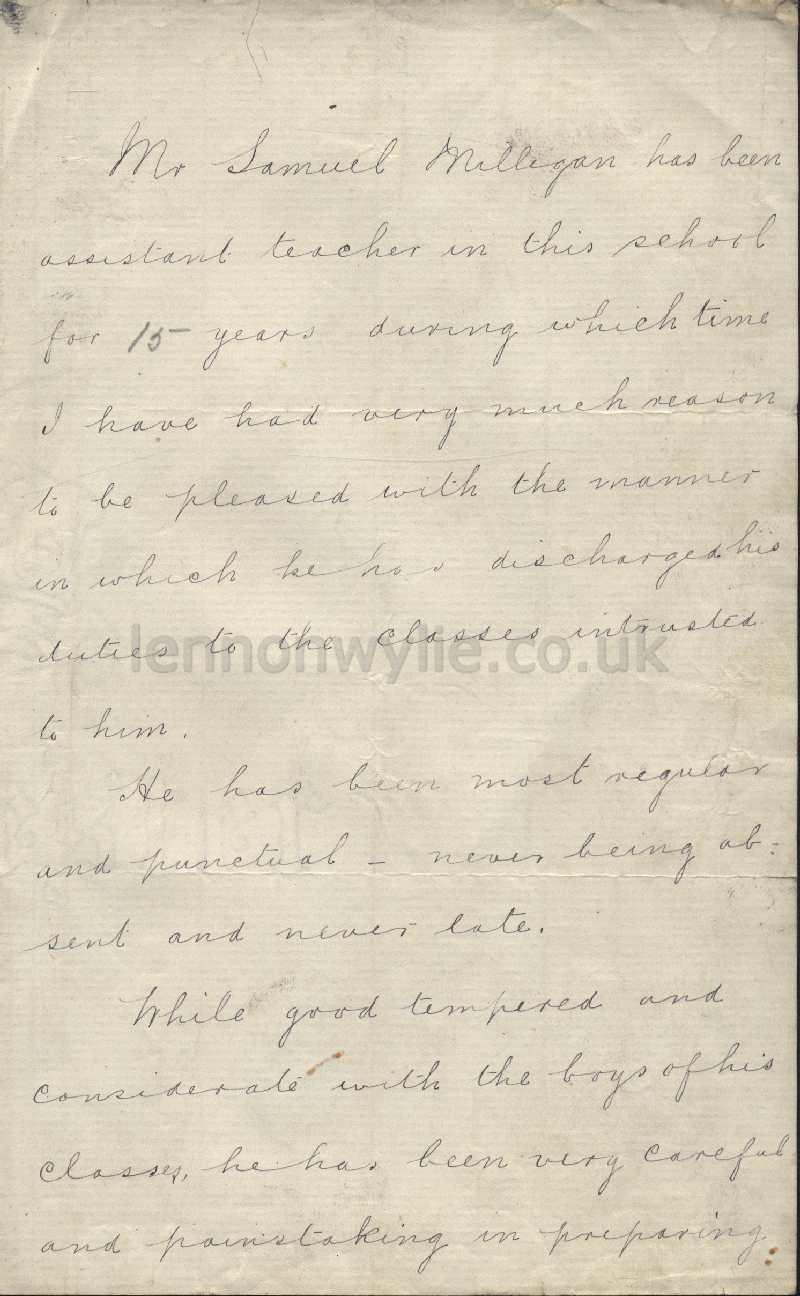 Mr Samuel Milligan has been
assistant teacher in this school
for 15 years during which time
I have had very much reason
to be pleased with the manner
in which he has discharged his
duties to the classes intrusted
lennonwylie.co.uk
to him.
He has been most regular
and punctual - never being ab:
sent and never late.
While good tempered and
considerate with the boys of his
classes, he has been very careful
and painstaking in preparing